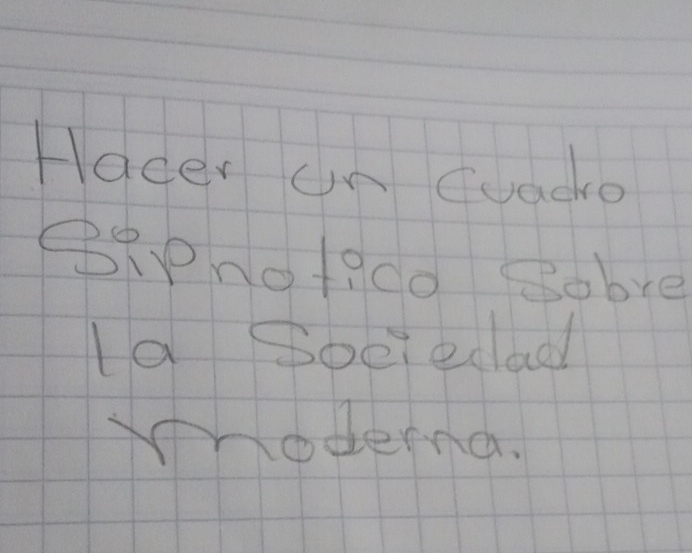 Hacer un cuadro
Sipnotico sobre
la sociedad
moderna.